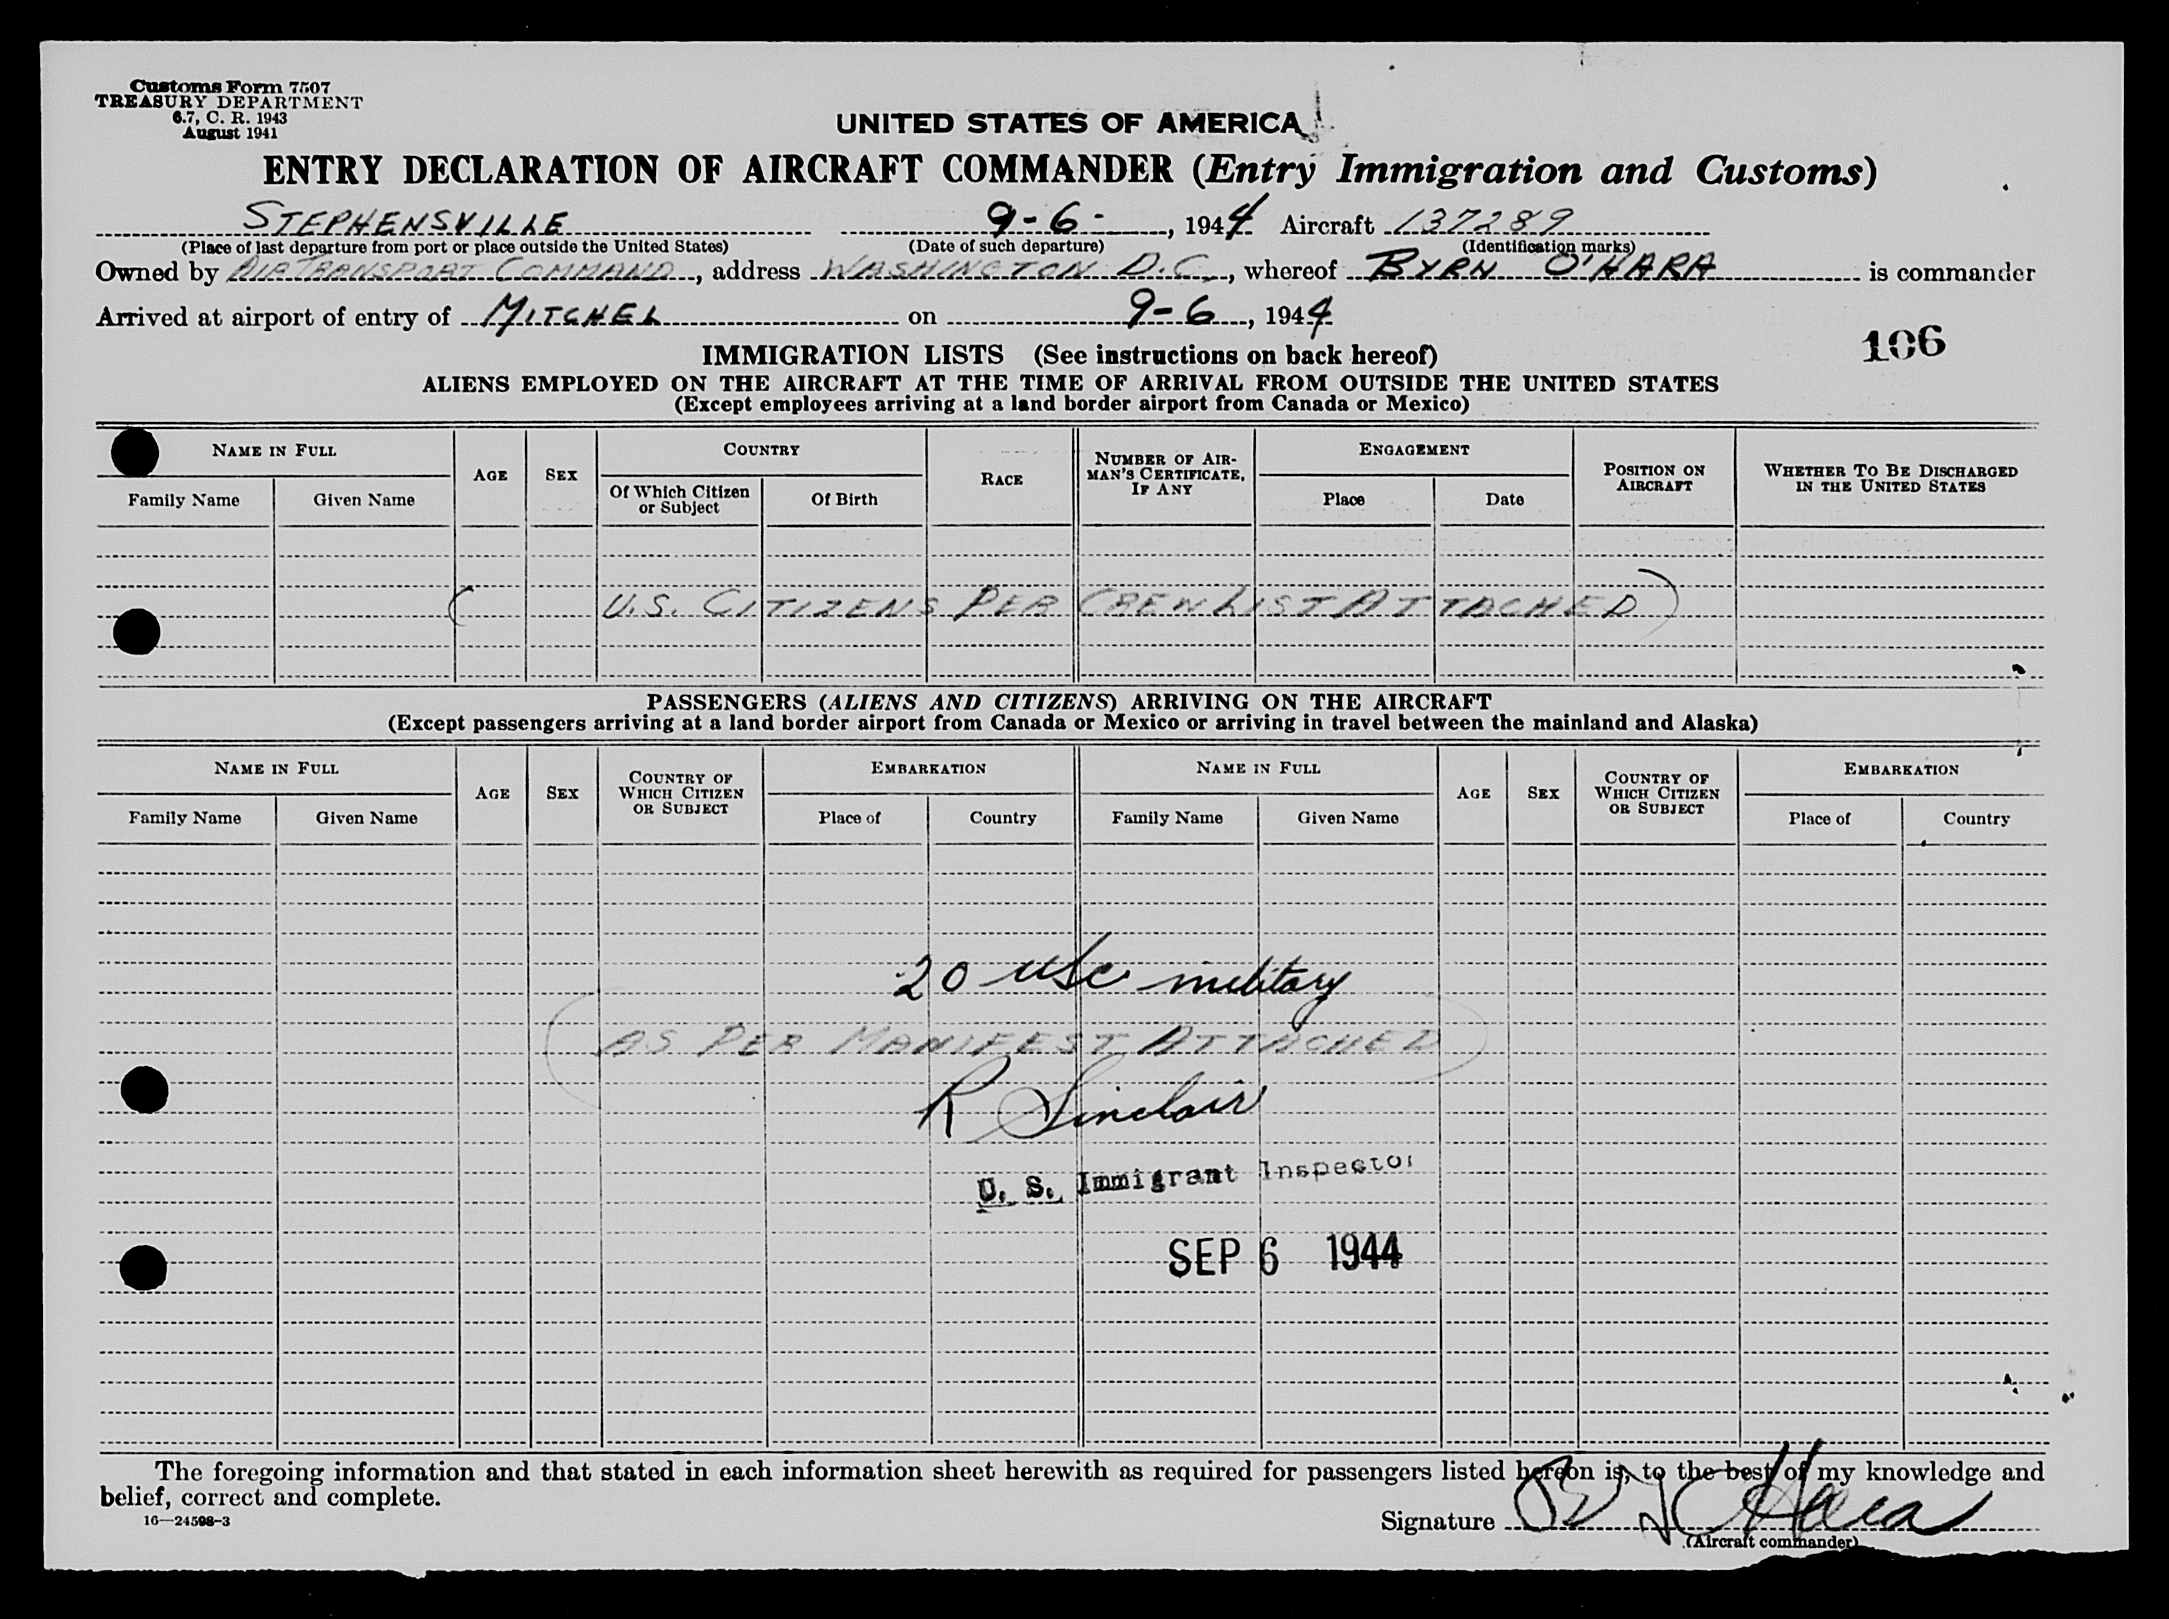 Customs Form 7507
TREASURY DEPARTMENT
6.7, C. R. 1943
August 1941
UNITED STATES OF AMERICA
ENTRY DECLARATION OF AIRCRAFT COMMANDER (Entry Immigration and Customs)
STEPHENSVILLE 9-6-, 1944 Aircraft 137289
(Place of last departure from port or place outside the United States) (Date of such departure) (Identification marks)
Owned by AIR TRANSPORT COMMAND, address WASHINGTON D.C., whereof BYRN O'HARA is commander
Arrived at airport of entry of MITCHEL on 9-6, 1944
106
IMMIGRATION LISTS (See instructions on back hereof)
ALIENS EMPLOYED ON THE AIRCRAFT AT THE TIME OF ARRIVAL FROM OUTSIDE THE UNITED STATES
(Except employees arriving at a land border airport from Canada or Mexico)
NAME IN FULL AGE SEX COUNTRY RACE NUMBER OF AIRMAN'S CERTIFICATE, IF ANY ENGAGEMENT POSITION ON AIRCRAFT WHETHER TO BE DISCHARGED IN THE UNITED STATES
Family Name Given Name Of Which Citizen or Subject Of Birth Place Date
(U.S. CITIZENS PER CREW LIST ATTACHED)
PASSENGERS (ALIENS AND CITIZENS) ARRIVING ON THE AIRCRAFT
(Except passengers arriving at a land border airport from Canada or Mexico or arriving in travel between the mainland and Alaska)
NAME IN FULL AGE SEX COUNTRY OF WHICH CITIZEN OR SUBJECT EMBARKATION NAME IN FULL AGE SEX COUNTRY OF WHICH CITIZEN OR SUBJECT EMBARKATION
Family Name Given Name Place of Country Family Name Given Name Place of Country
20 USC military
(AS PER MANIFEST ATTACHED)
R Sinclair
U. S. Immigrant Inspector
SEP 6 1944
The foregoing information and that stated in each information sheet herewith as required for passengers listed hereon is, to the best of my knowledge and
belief, correct and complete.
16—24598-3
Signature
(Aircraft commander)